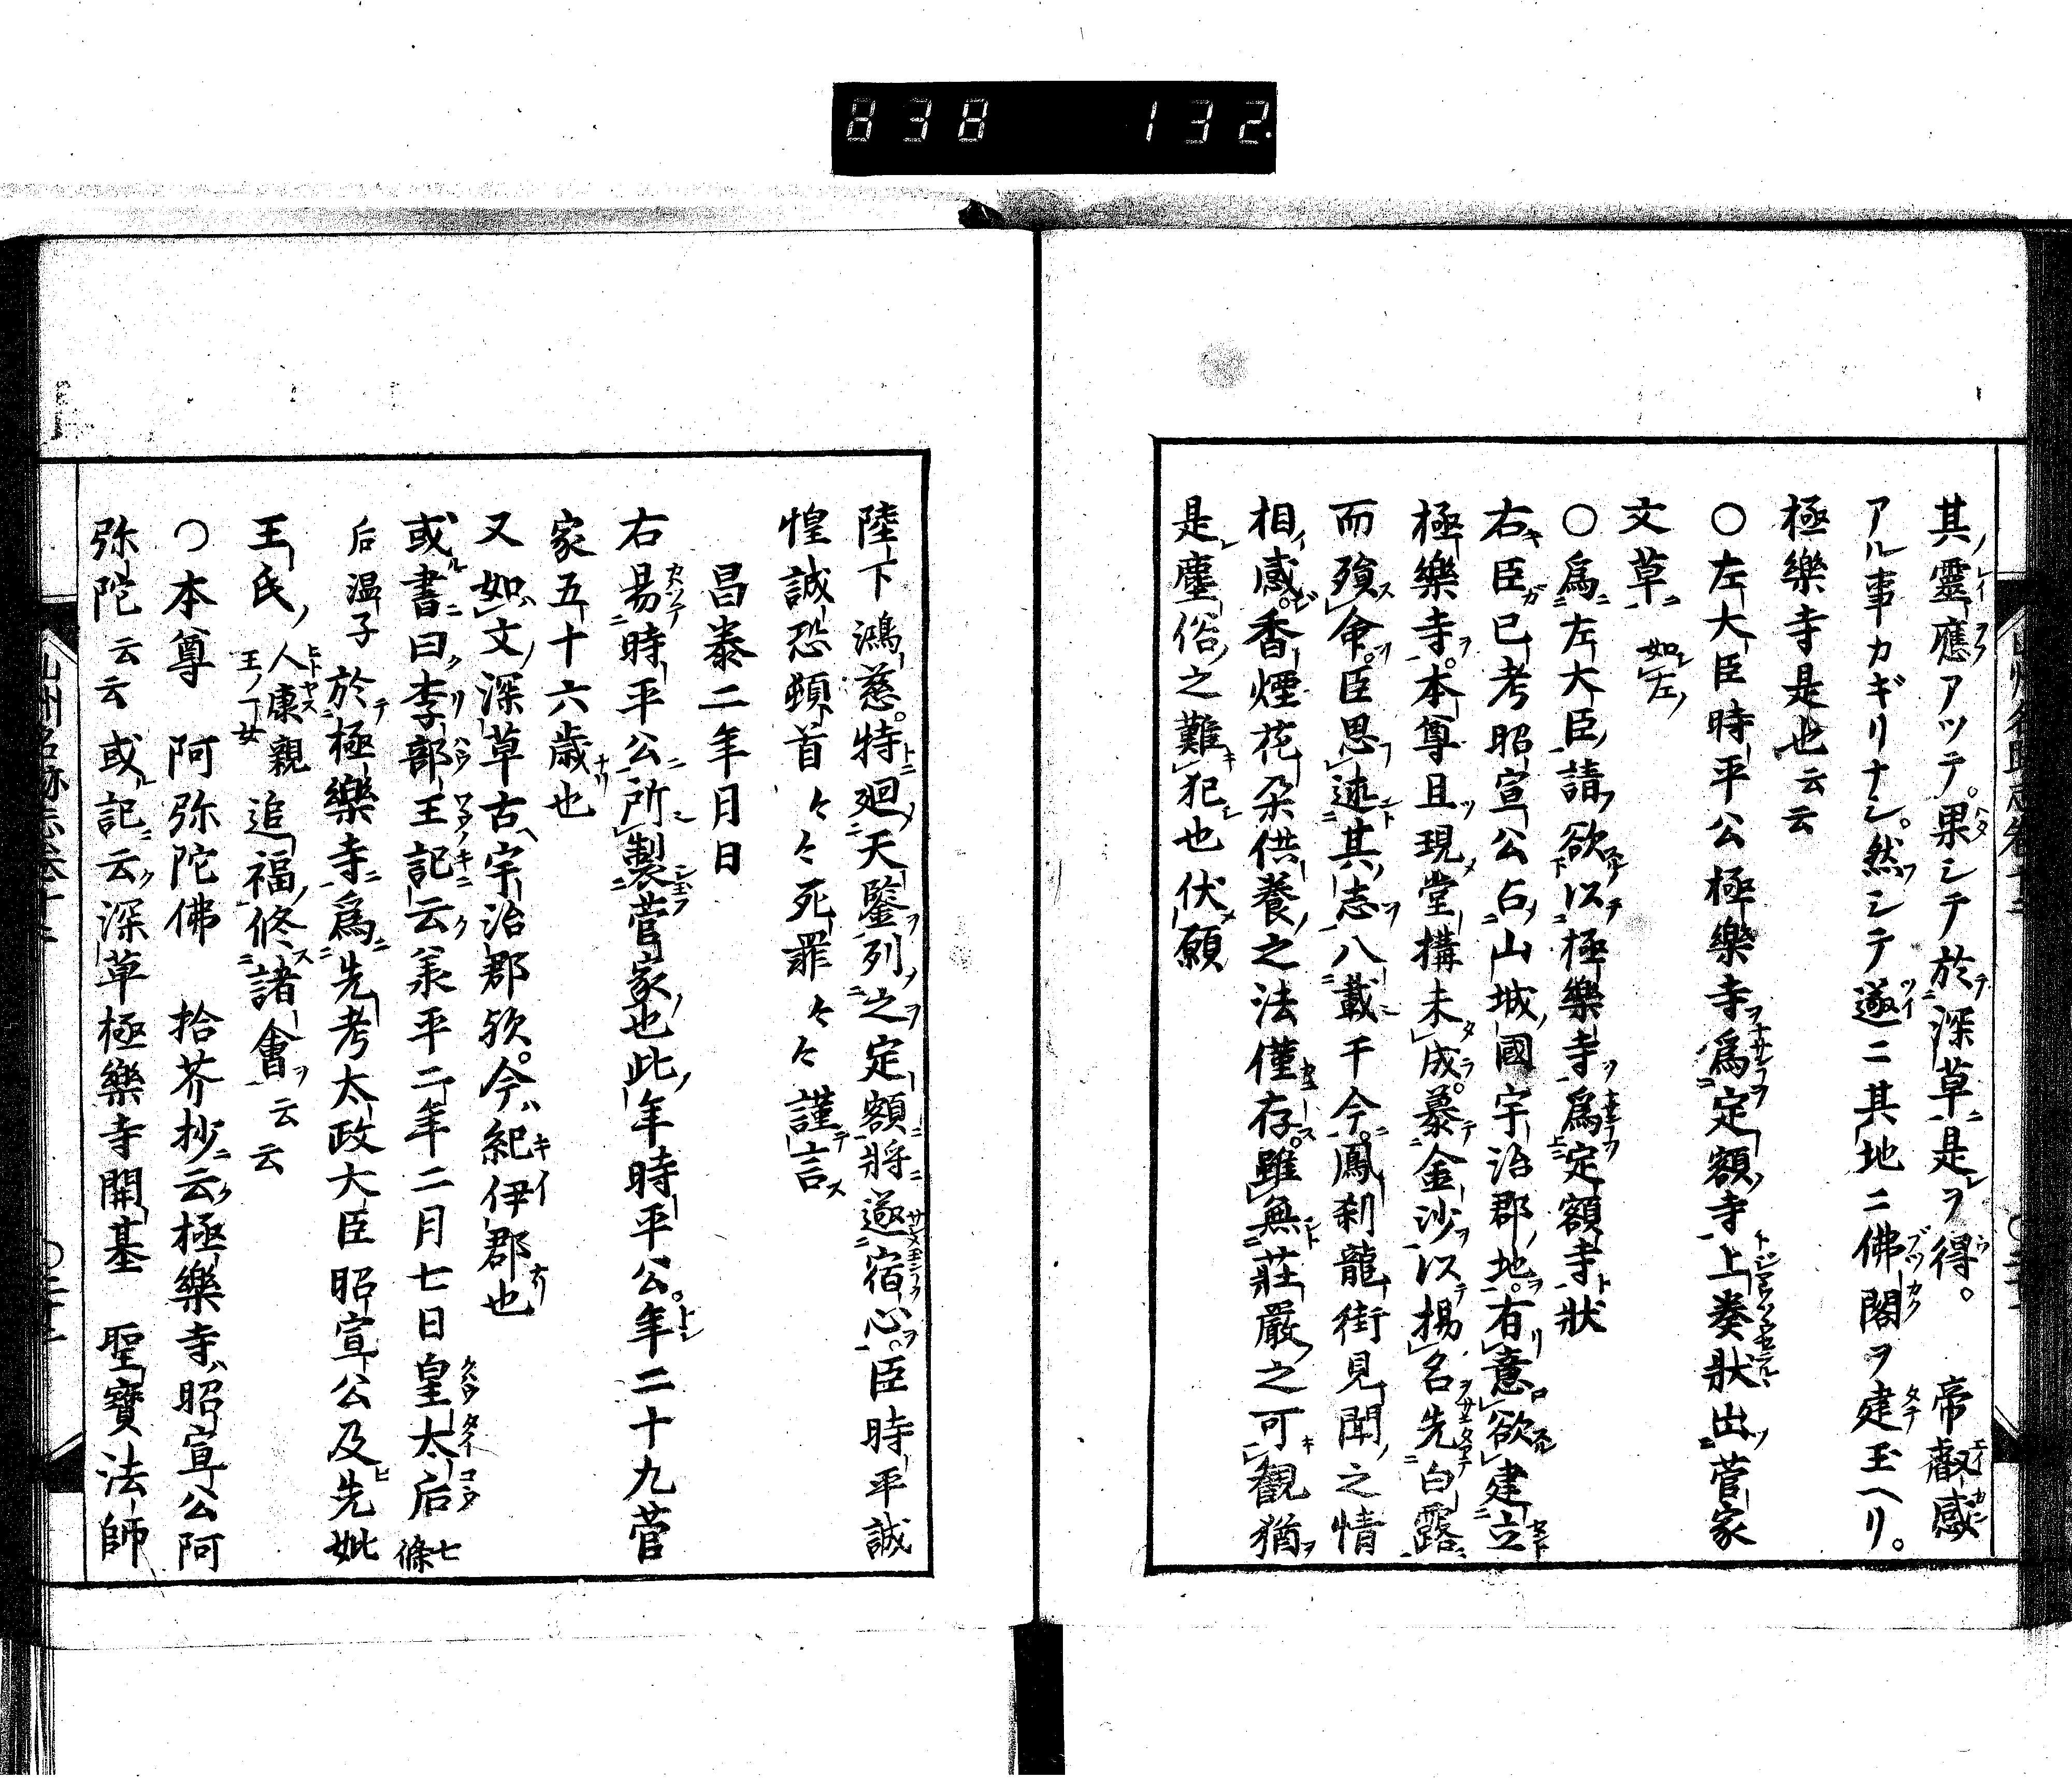 838 132
其靈應アツテ。果シテ於深草是ヲ得。帝叡感
アル事カギリナシ。然シテ遂ニ其地ニ佛閣ヲ建玉ヘリ。
極樂寺是也云云
〇左大臣時平公極樂寺爲定額寺上奏狀出菅家
文草如左
〇爲左大臣請欲以極樂寺爲定額寺狀
右臣已考昭宣公占山城國宇治郡地。有意欲建立
極樂寺。本尊且現堂搆未成。募金沙以揚名先白露
而殞命。臣思述其志八載于今。鳳刹龍街見聞之情
相感。香煙花朶供養之法僅存。雖無莊嚴之可觀猶
是塵俗之難犯也伏願
陸下鴻慈。特廻天鑒列之定額將遂宿心。臣時平誠
惶誠恐頓首々々死罪々々謹言
昌泰二年月日
右昜時平公所製菅家也此年時平公。年二十九菅
家五十六歲也
又如文深草古宇治郡欤。今紀伊郡也
或書曰李部王記云羕平二年二月七日皇太后七條
后温子於極樂寺爲先考太政大臣昭宣公及先妣
王氏人康親王ノ女追福修諸會云云
〇本尊 阿弥陀佛 拾芥抄云極樂寺昭宣公阿
弥陀云云或記云深草極樂寺開基 聖寶法師